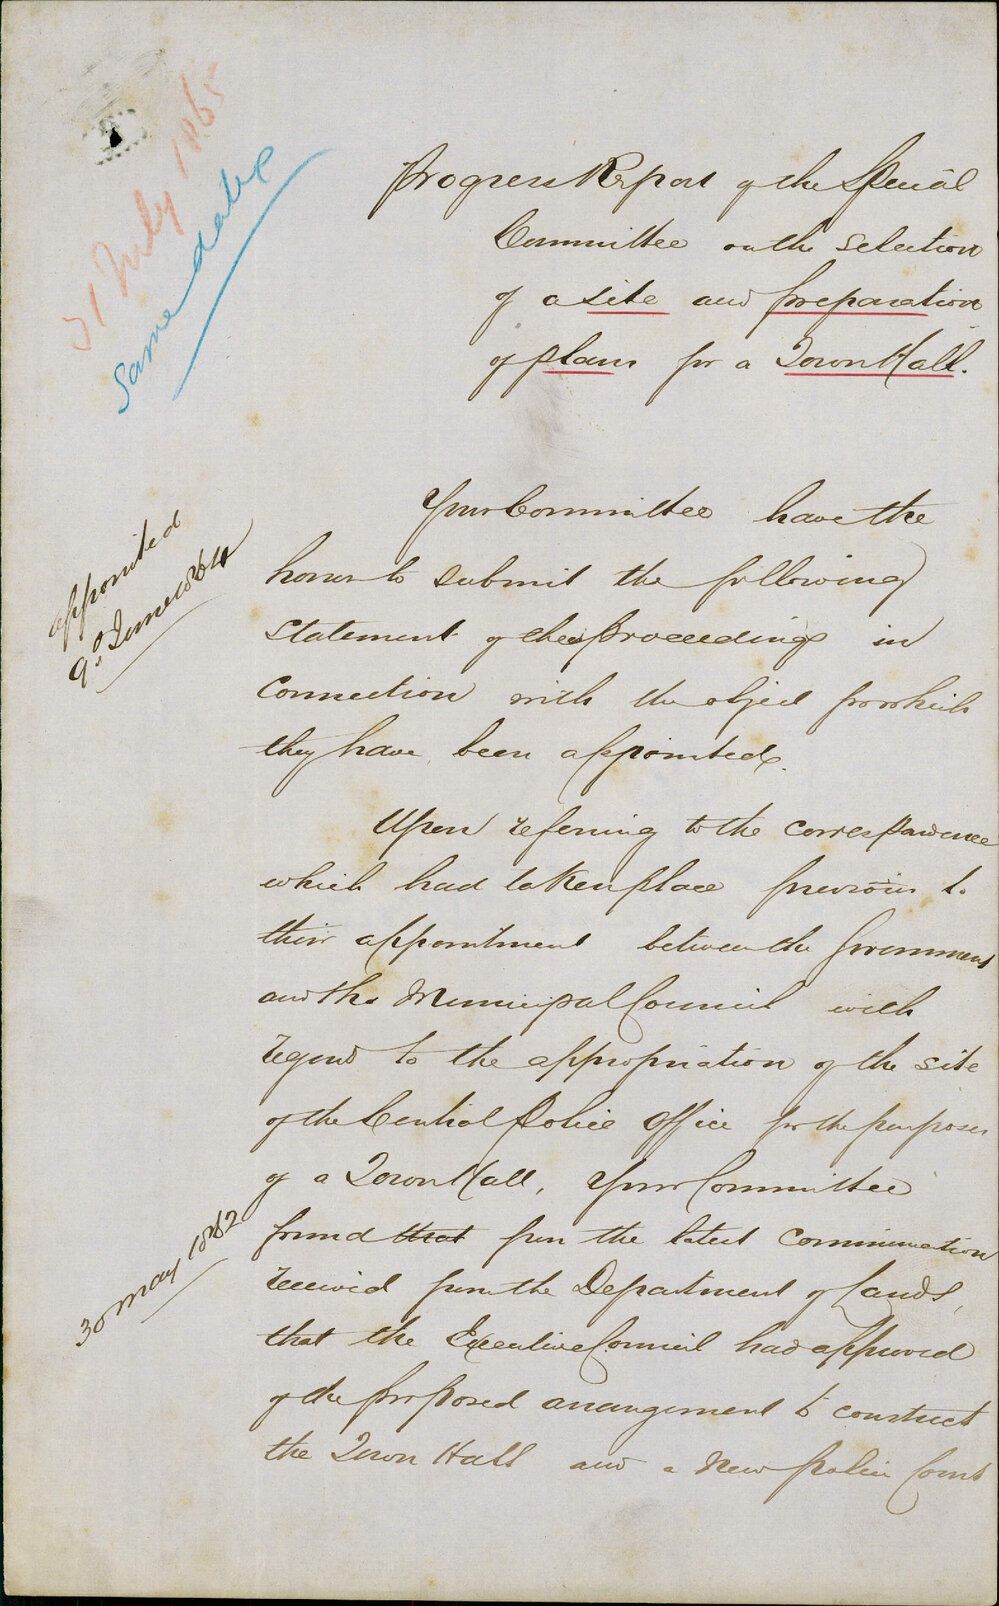 31 July 1865
Same date
Progress Report of the Special
Committee on the selection
of a site and preparation
of plans for a Town Hall.
appointed
9th June 1864
Your Committee have the
honor to submit the following
statement of their proceedings in
connection with the object for which
they have been appointed.
Upon referring to the correspondence
which had taken place previous to
their appointment between the Government
and the Municipal Council with
regard to the appropriation of the site
of the Central Police Office for the purposes
of a Town Hall, Your Committee
30 May 1862
found that from the latest communication
received from the Department of Lands,
that the Executive Council had approved
of the proposed arrangement to construct
the Town Hall and a New Police Court